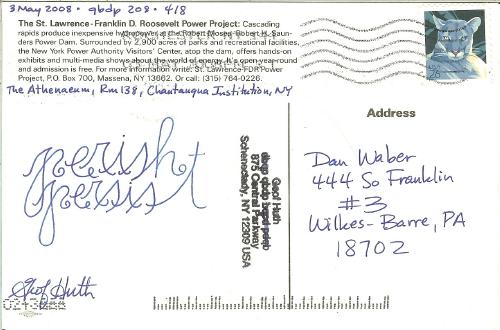 3 May 2008 · qbdp 208 · 418
The St. Lawrence - Franklin D. Roosevelt Power Project: Cascading
rapids produce inexpensive hydropower at the Robert Moses-Robert H. Saun-
ders Power Dam. Surrounded by 2,900 acres of parks and recreational facilities,
the New York Power Authority Visitors' Center, atop the dam, offers hands-on
exhibits and multi-media shows about the world of energy. It's open year-round
and admission is free. For more information write: St. Lawrence-FDR Power
Project, P.O. Box 700, Massena, NY 13662. Or call: (315) 764-0226.
The Athenaeum, Rm 138, Chautauqua Institution, NY
perish
persist
Geof Huth
Geof Huth
875 Central Parkway
Schenectady, NY 12309 USA
Address
Dan Waber
444 So Franklin
#3
Wilkes-Barre, PA
18702
USA
26